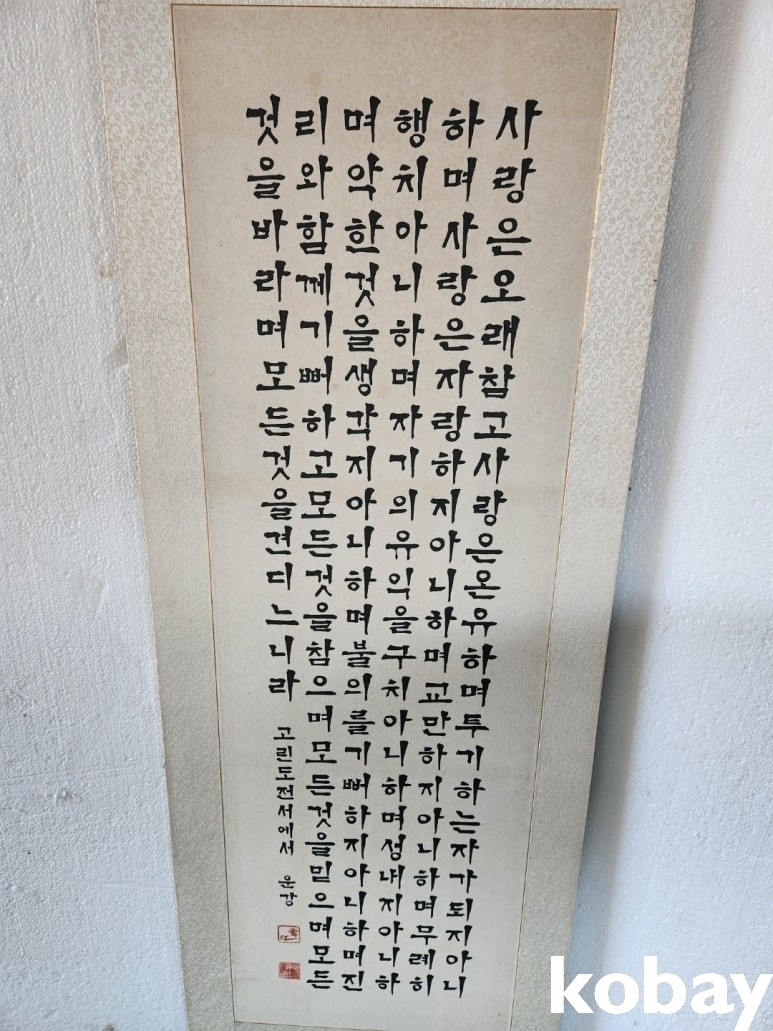 사랑은오래참고사랑은온유하며투기하는자가되지아니
하며사랑은자랑하지아니하며교만하지아니하며무례히
행치아니하며자기의유익을구치아니하며성내지아니하
며악한것을생각지아니하며불의를기뻐하지아니하며진
리와함께기뻐하고모든것을참으며모든것을믿으며모든
것을바라며모든것을견디느니라
고린도전서에서 운강
kobay